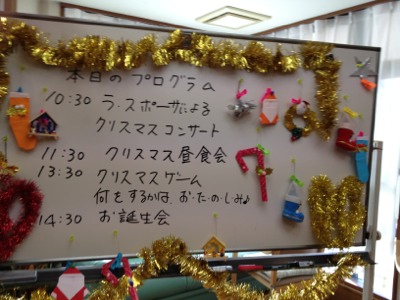 本日のプログラム
10:30 ラ・スポーサによる
クリスマスコンサート
11:30 クリスマス昼食会
13:30 クリスマスゲーム
何をするかは、お・た・の・し・み♪
14:30 お誕生会